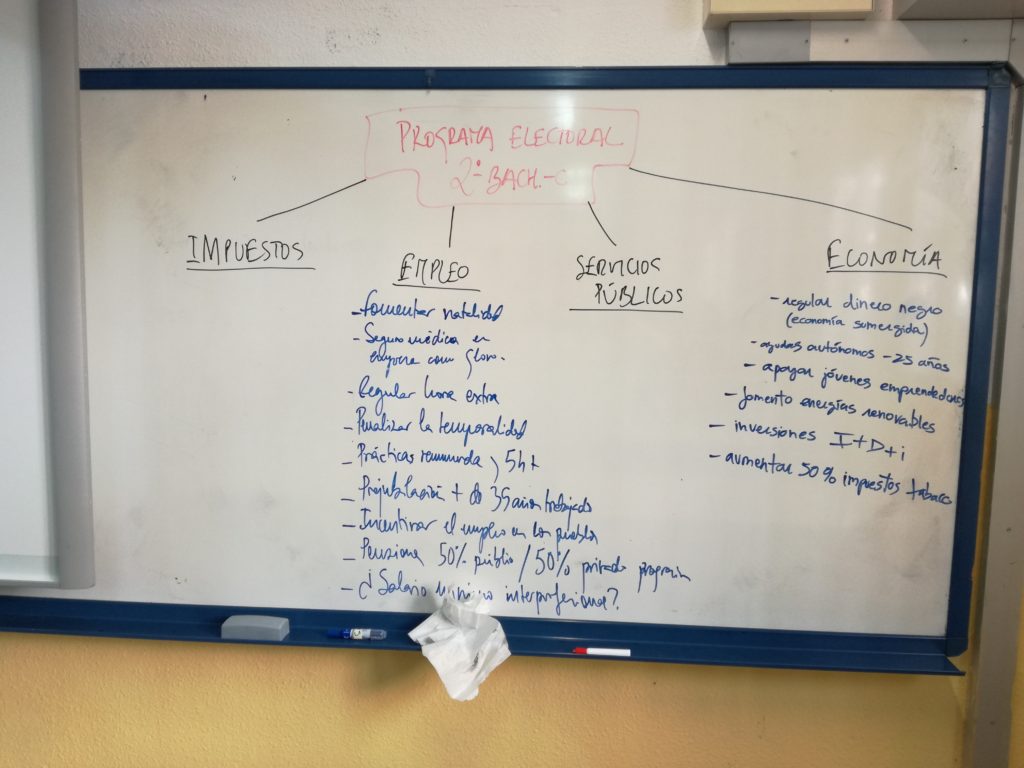 PROGRAMA ELECTORAL
2º BACH.-C
IMPUESTOS
EMPLEO
- Fomentar natalidad
- Seguro médico en
empresa com
- Regular hora extra
- Penalizar la temporalidad
- Prácticas remunerada y 5h +
- Prejubilación + de 35 años trabajado
- Incentivar el empleo en los pueblos
- Pensiones 50% público / 50% privado
- ¿Salario mínimo interprofesional?
SERVICIOS
PÚBLICOS
ECONOMÍA
- regular dinero negro
(economía sumergida)
- ayudas autónomos -25 años
- apoyar jóvenes emprendedores
- fomento energías renovables
- inversiones I+D+i
- aumentar 50% impuestos tabaco